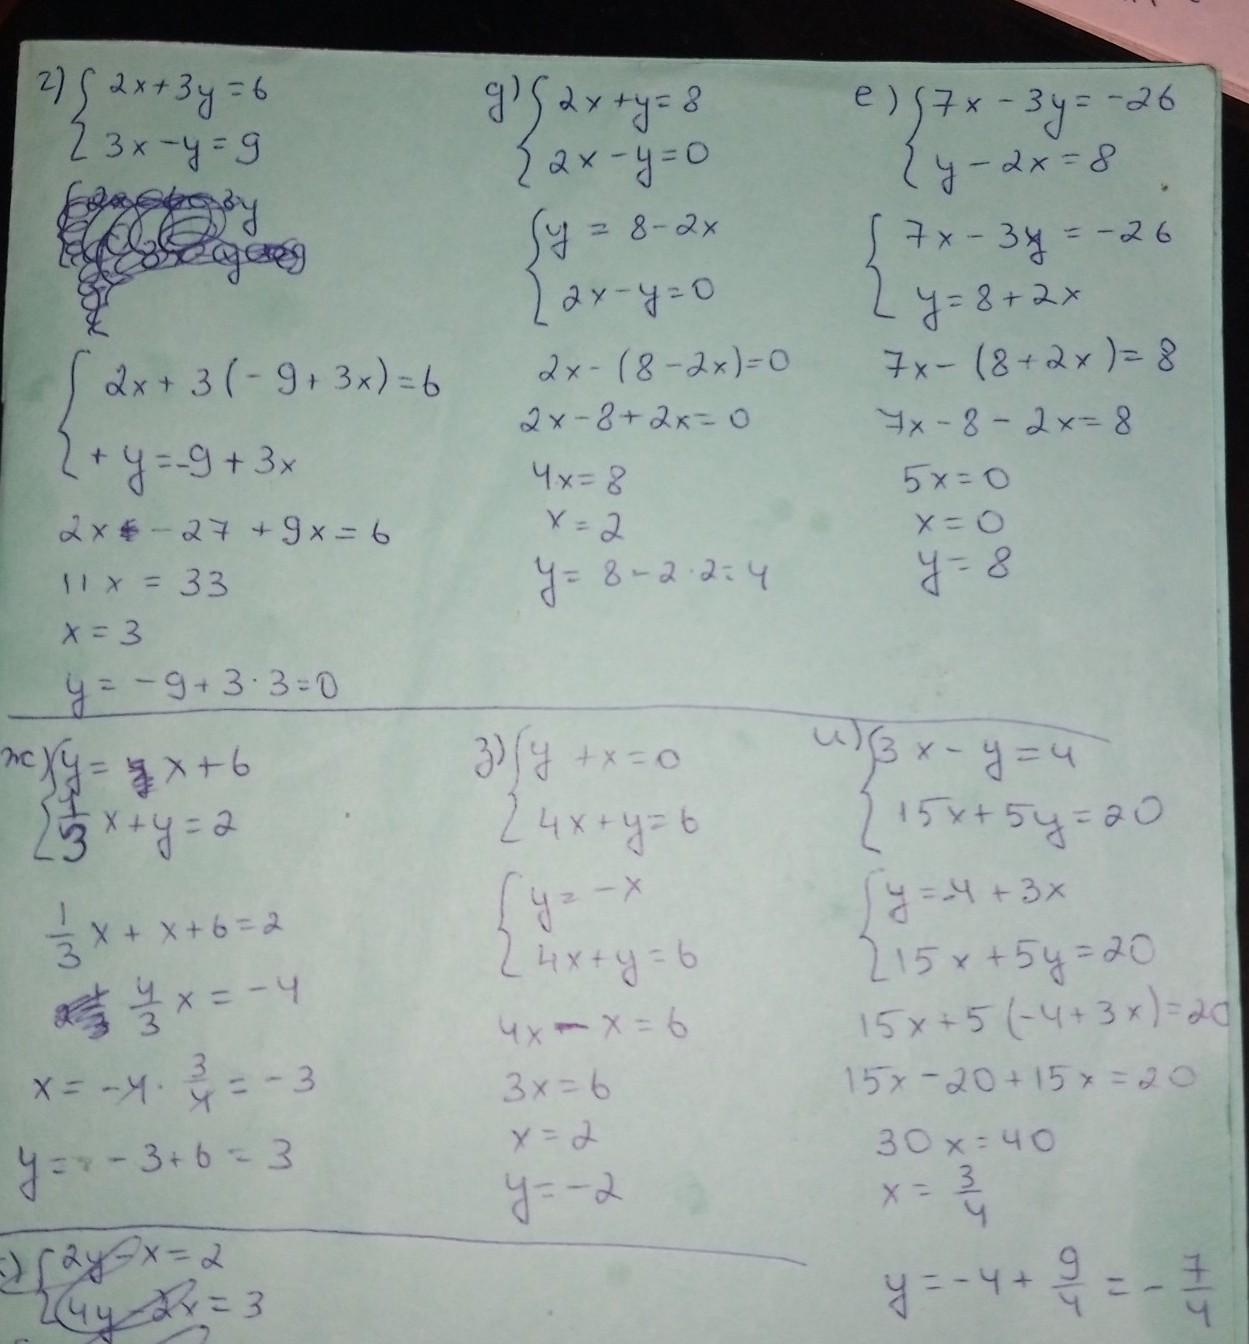 г) { 2x + 3y = 6
3x - y = 9
{ 2x + 3(-9 + 3x) = 6
+ y = -9 + 3x
2x - 27 + 9x = 6
11x = 33
x = 3
y = -9 + 3 · 3 = 0
д) { 2x + y = 8
2x - y = 0
{ y = 8 - 2x
2x - y = 0
2x - (8 - 2x) = 0
2x - 8 + 2x = 0
4x = 8
x = 2
y = 8 - 2 · 2 = 4
е) { 7x - 3y = -26
y - 2x = 8
{ 7x - 3y = -26
y = 8 + 2x
7x - (8 + 2x) = 8
7x - 8 - 2x = 8
5x = 0
x = 0
y = 8
ж) { y = x + 6
1/3 x + y = 2
1/3 x + x + 6 = 2
4/3 x = -4
x = -4 · 3/4 = -3
y = -3 + 6 = 3
з) { y + x = 0
4x + y = 6
{ y = -x
4x + y = 6
4x - x = 6
3x = 6
x = 2
y = -2
и) { 3x - y = 4
15x + 5y = 20
{ y = -4 + 3x
15x + 5y = 20
15x + 5(-4 + 3x) = 20
15x - 20 + 15x = 20
30x = 40
x = 3/4
y = -4 + 9/4 = -7/4
{ 2y - x = 2
4y - 2x = 3